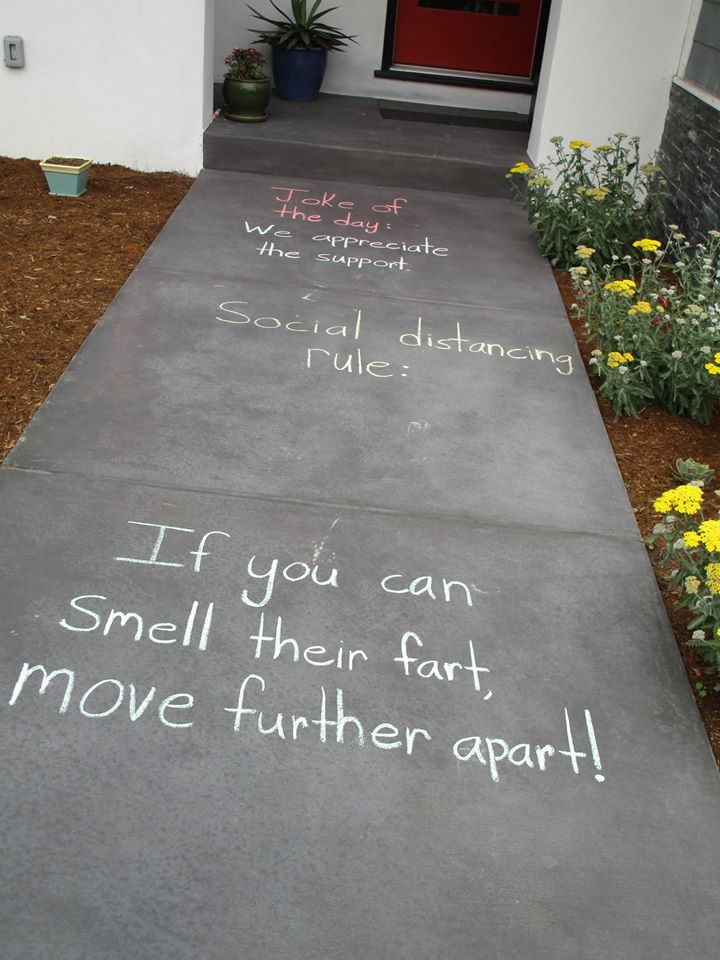 Joke of
the day:
We appreciate
the support.
Social distancing
rule:
If you can
smell their fart,
move further apart!